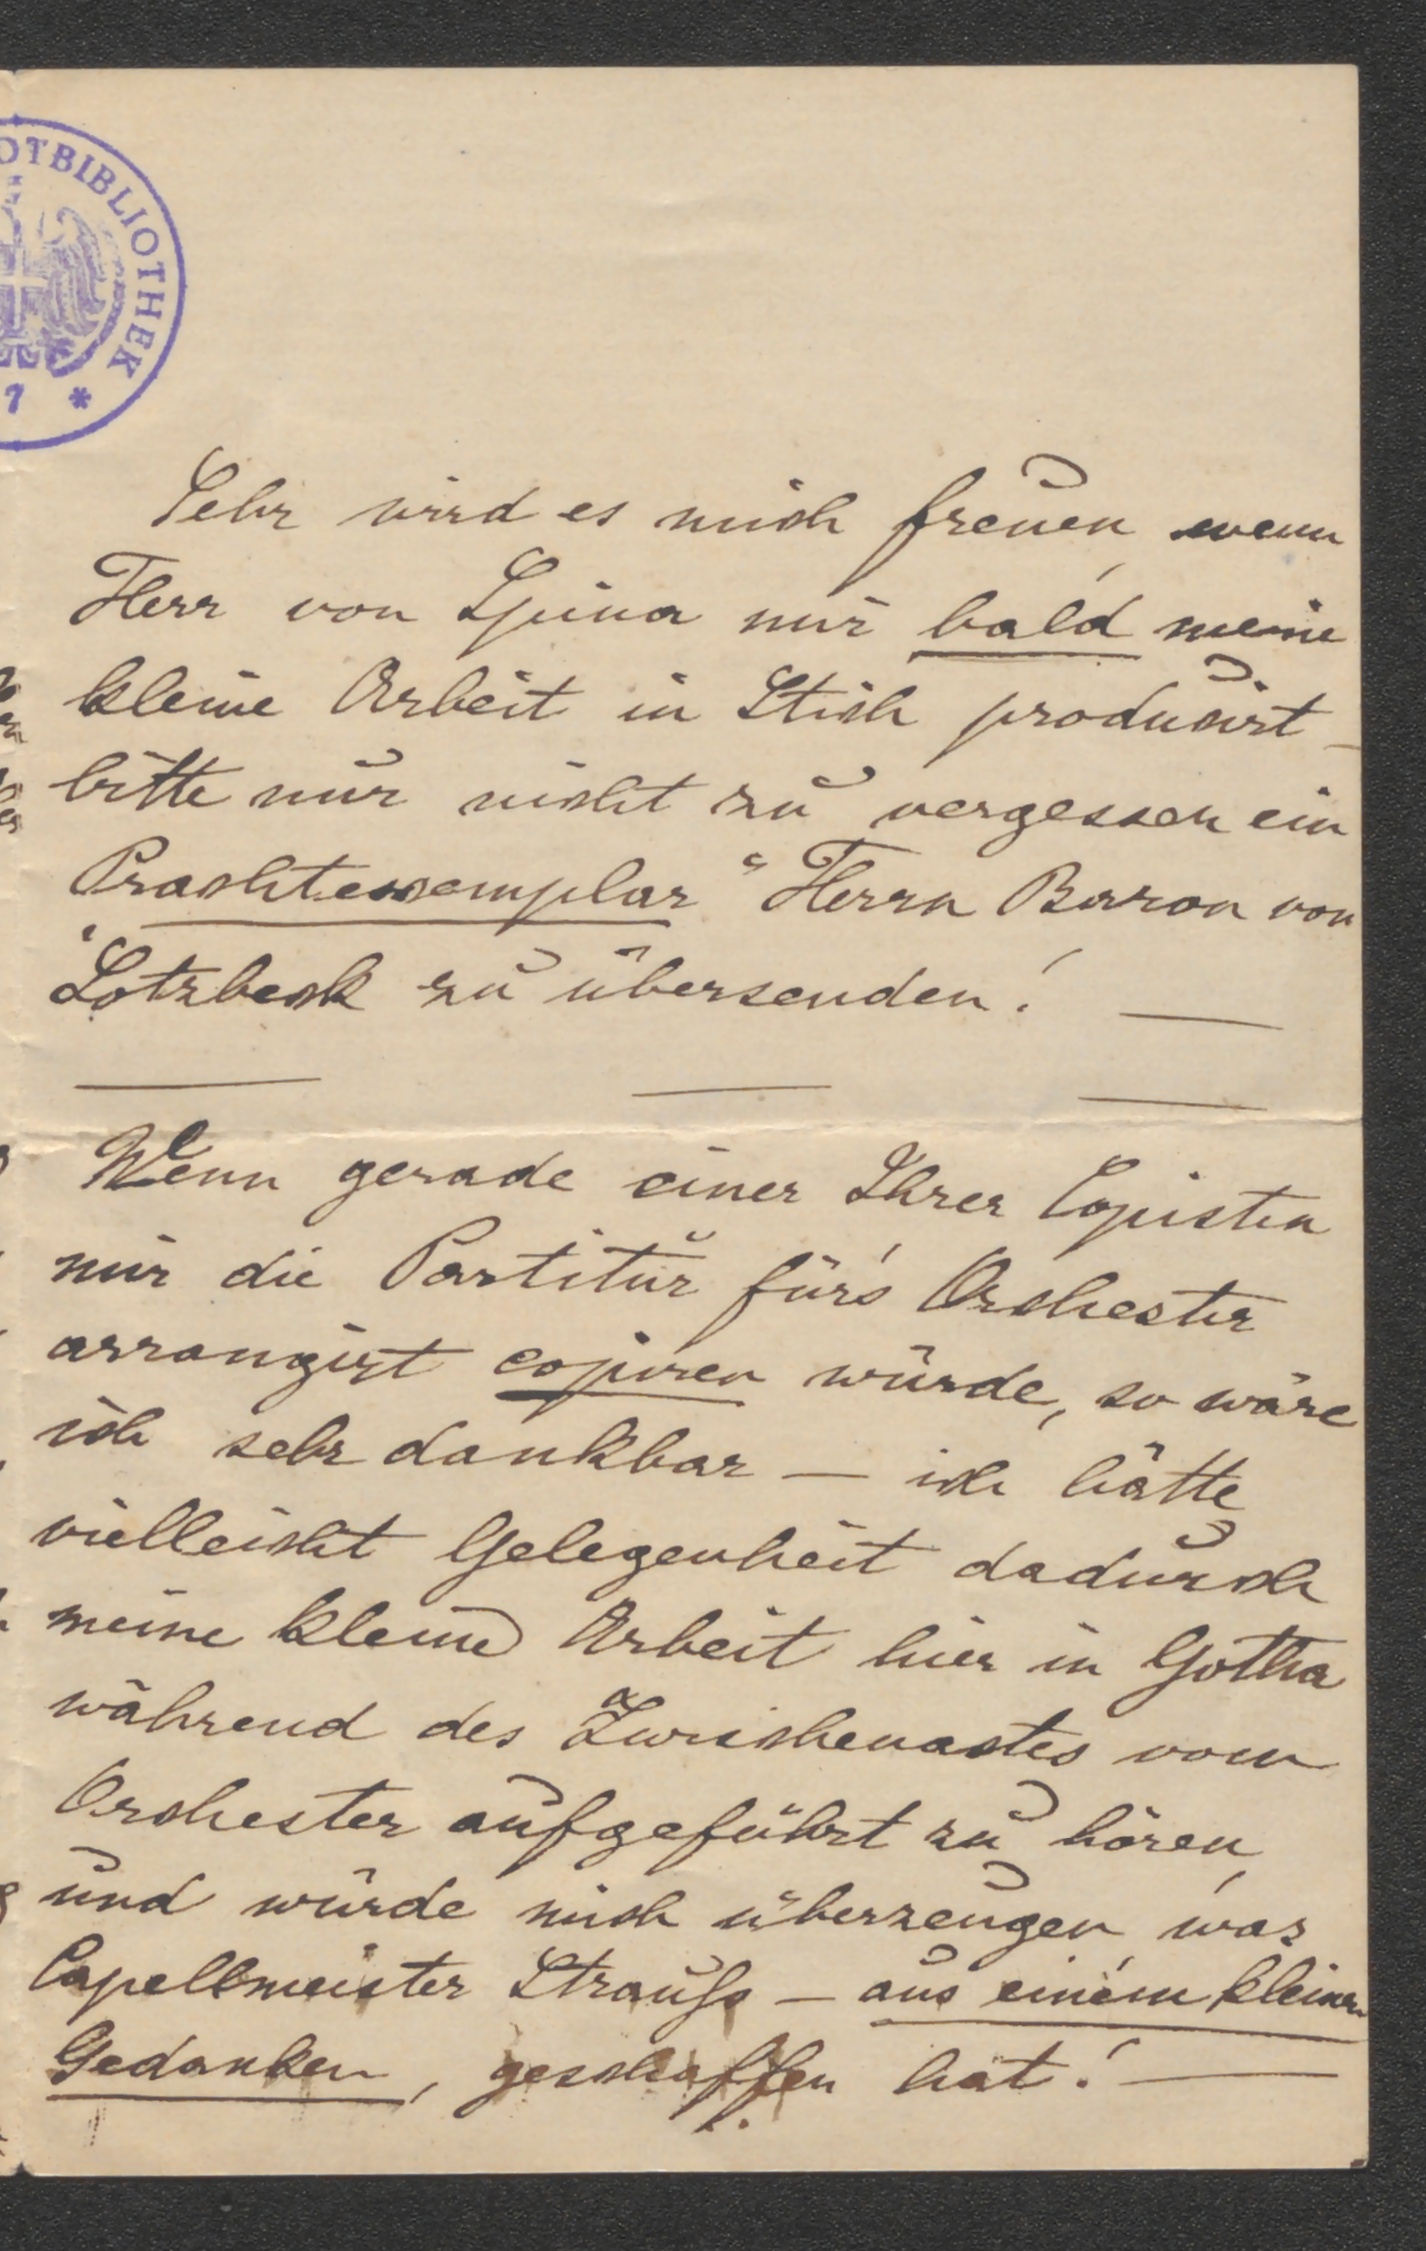 OTBIBLIOTHEK
7 *
Sehr wird es mich freuen, wenn
Herr von Spina mir bald meine
kleine Arbeit in Stich producirt –
bitte nur nicht zu vergessen ein
Prachtexemplar "Herrn Baron von
Lotzbeck zu übersenden! —
— — —
Wenn gerade einer Ihrer Copisten
mir die Partitur für's Orchester
arrangirt copiren würde, so wäre
ich sehr dankbar — ich hätte
vielleicht Gelegenheit dadurch
meine kleine Arbeit hier in Gotha
während des Zwischenactes vom
Orchester aufgeführt zu hören,
und würde mich überzeugen was
Capellmeister Strauß – aus einem kleinen
Gedanken, geschaffen hat! —